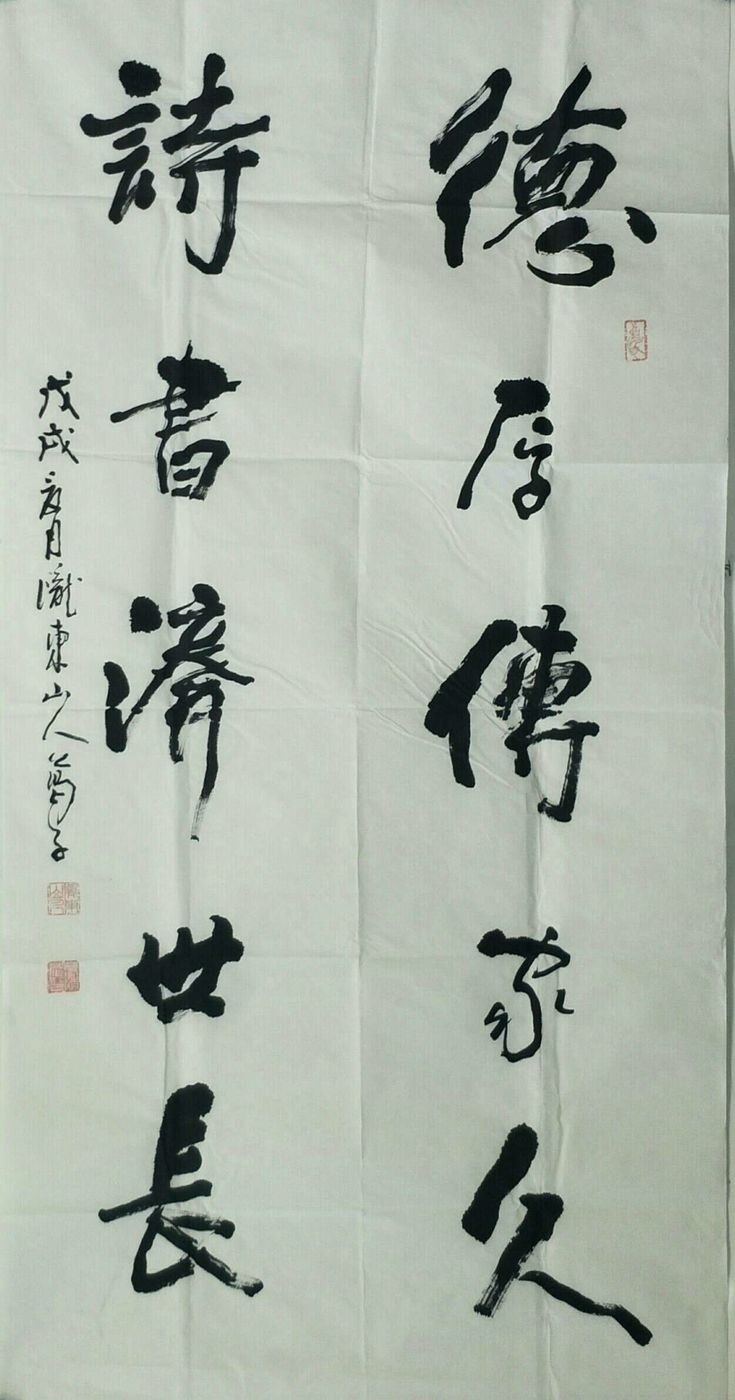 德厚傳家久
詩書濟世長
戊戌 月隴東山人葛子